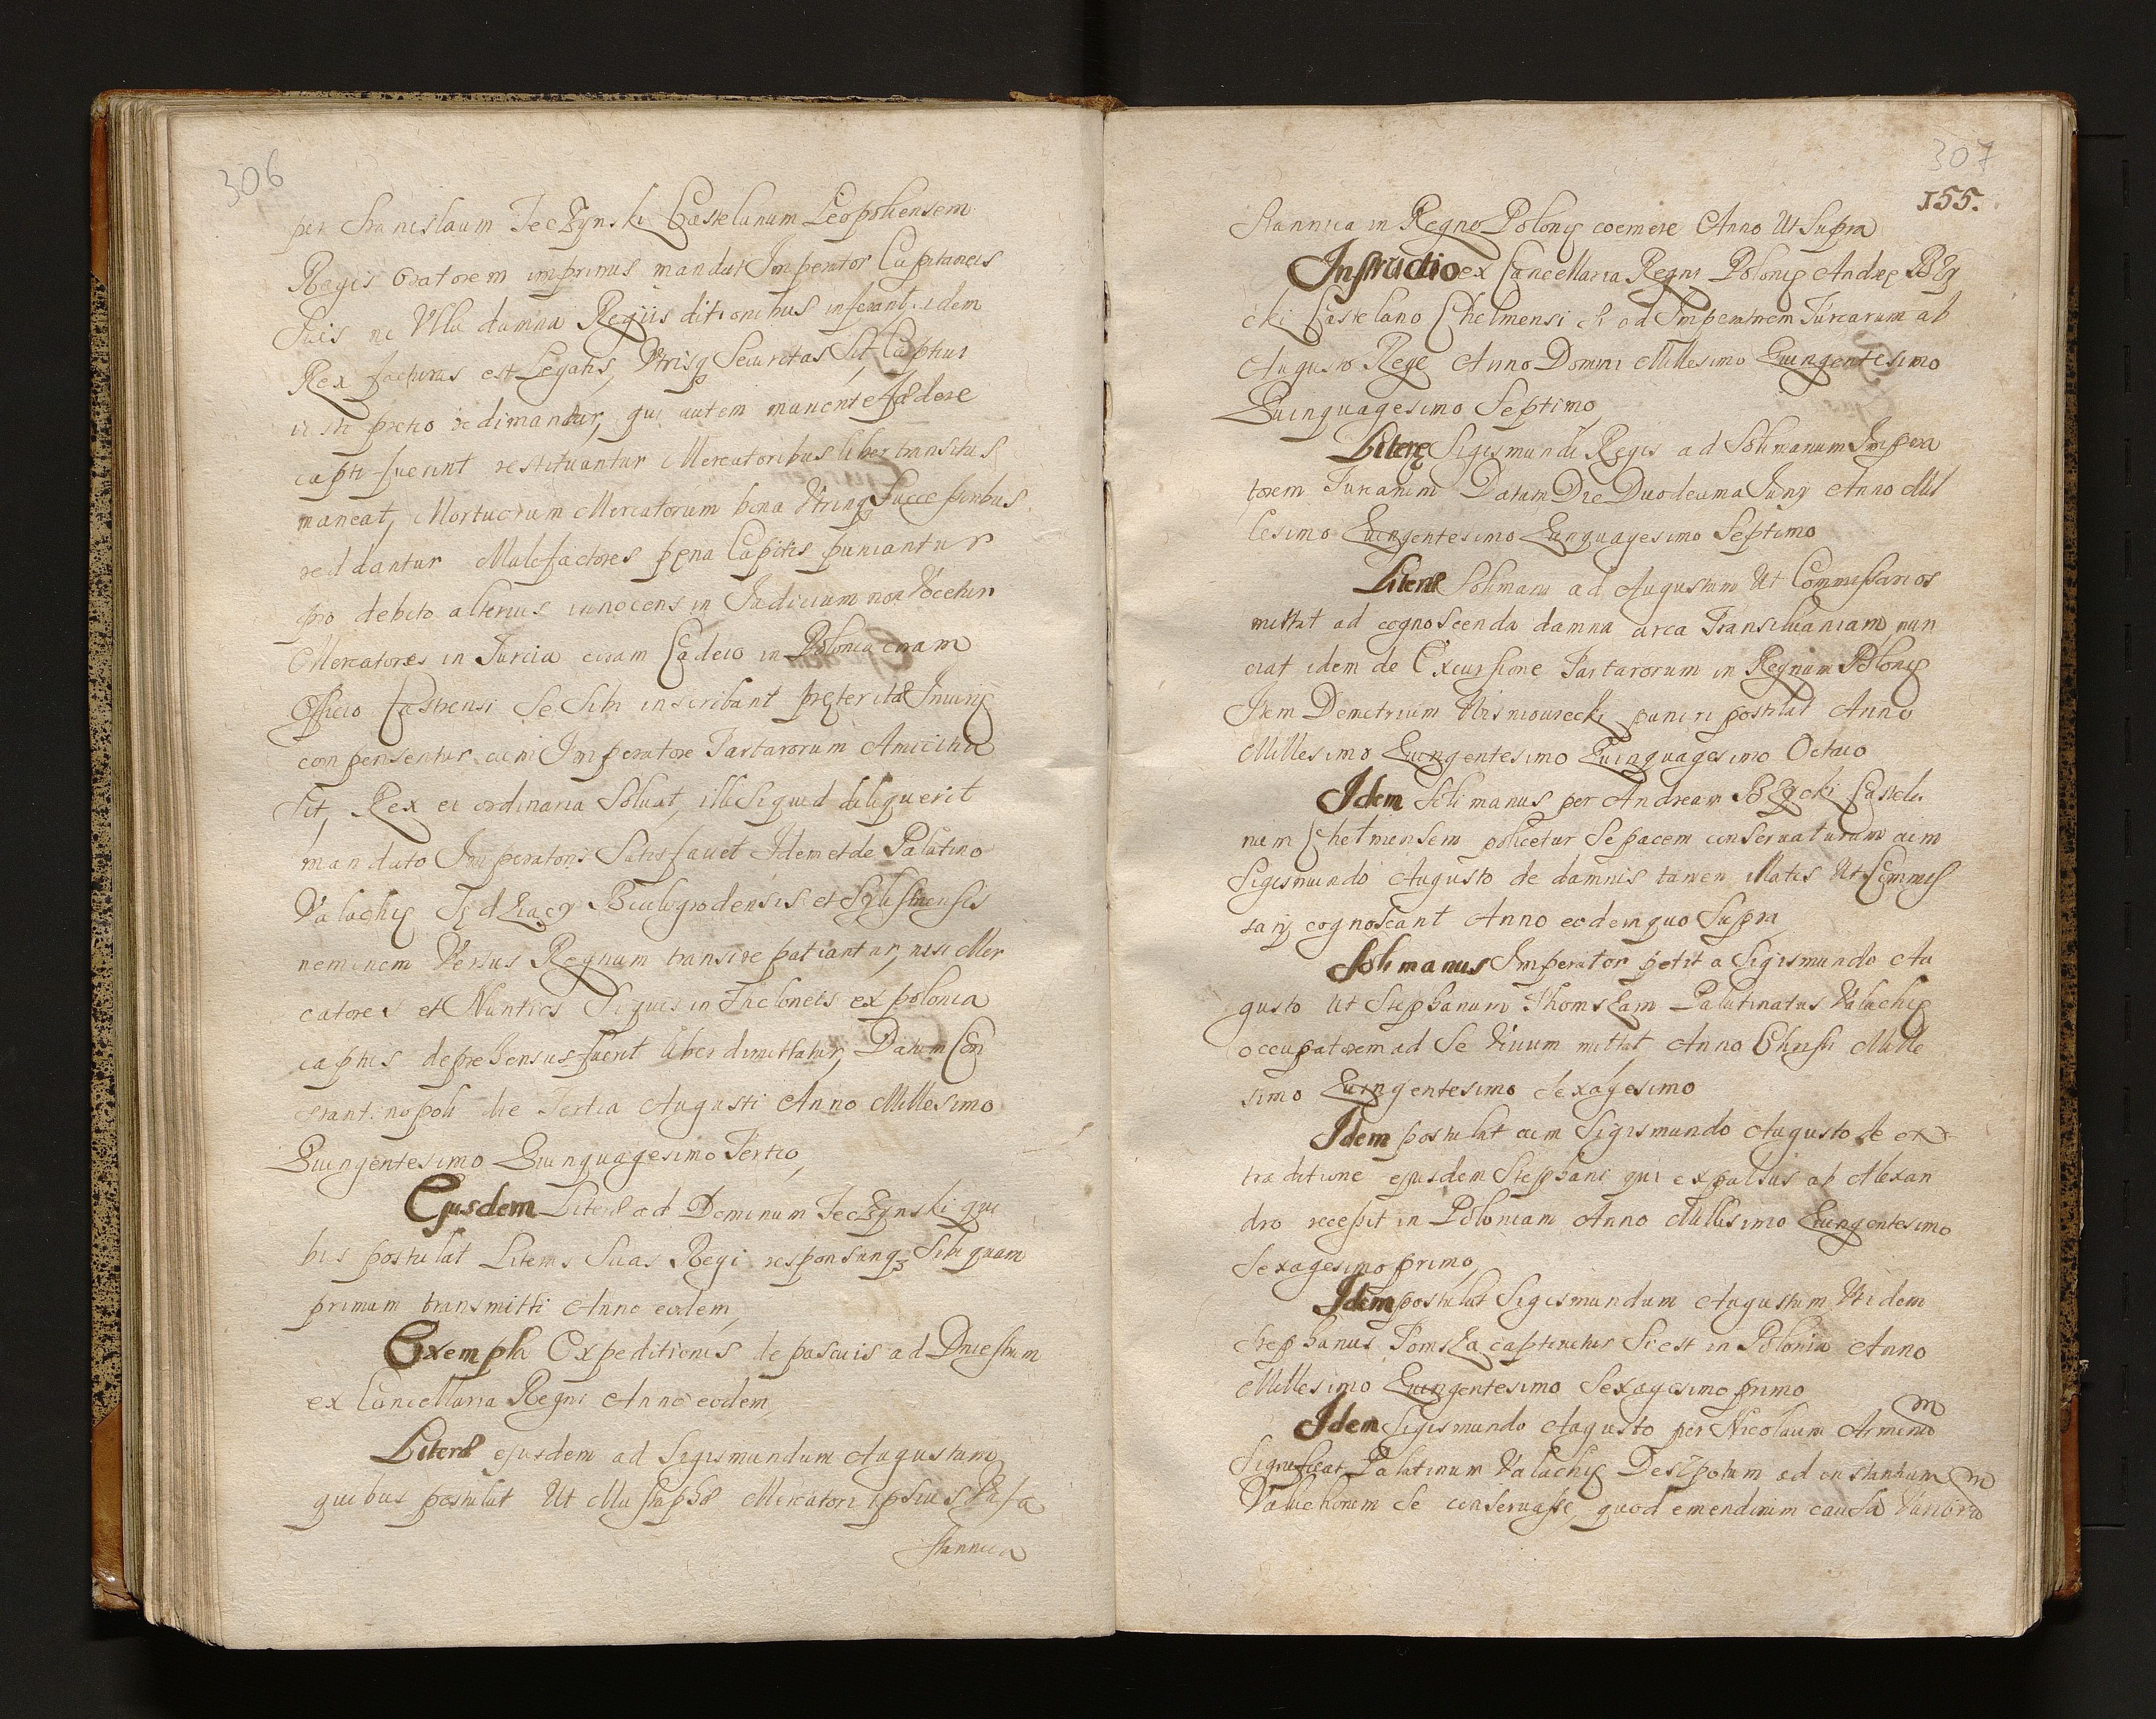 306
per Stanislaum Teczynski Castelanum Leopoliensem
Regis oratorem imprimis mandat Imperator Capitaneis
Suis ne Ulla damna Regiis ditionibus inferant idem
Rex facturus est Legatis, Utrisq Securitas Sit, Captiui
iusto pretio redimantur, qui autem manente fædere
capti fuerint restituantur Mercatoribus liber transitus
maneat, Mortuorum Mercatorum bona Utrinq Successoribus
reddantur Malefactores pęna Capitis puniantur
pro debito alterius innocens in Iudicium non Vocetur
Mercatores in Turcia coram Cadeio in Polonia coram
Officio Castrensi Se Sibi inscribant pręteritæ Iniurię
compensentur cum Imperatore Tartarorum Amicitia
Sit, Rex ei ordinaria Soluat, ille Siquid deliquerit
mandato Imperatoris Satisfaciet Idem et de Palatino
Valachię Sędziacy Bialogrodensis et Sylistriensis
neminem Versus Regnum transire patiantur, nisi Mer
catores et Nuntios Siquis in Incloneis ex polonia
captus deprehensus fuerit liber dimittatur, Datum Con
stantinopoli die Tertia Augusti Anno Millesimo
Quingentesimo Quinquagesimo Tertio,
Ejusdem Literæ ad Dominum Teczynski qui
bus postulat Literas Suas Regi responsumq Sibi quam
primum transmitti Anno eodem,
Exempla Expeditionis de pascuis ad Dniestrum
ex Cancellaria Regni Anno eodem,
Literæ ejusdem ad Sigismundum Augustum
quibus postulat Ut Mustaphæ Mercatori ipsius Vasa
stannea
307
155.
Stannea in Regno Polonię coemere Anno Ut Supra
Instructio ex Cancellaria Regni Polonię Andreę Bzy
cki Castelano Chelmensi et ad Imperatorem Turcarum ab
Augusto Rege Anno Domini Millesimo Quingentesimo
Quinquagesimo Septimo
Literę Sigismundi Regis ad Solimanum Impera
torem Turcarum Datum Die Duodecima Iunij Anno Mil
lesimo Quingentesimo Quinquagesimo Septimo
Literæ Solimani ad Augustum Ut Commissarios
mittat ad cognoscenda damna circa Transiluaniam nun
ciat idem de Excursione Tartarorum in Regnum Polonię
Item Demetrium Wisniowiecki puniri postulat Anno
Millesimo Quingentesimo Quinquagesimo Octauo
Idem Solimanus per Andream Bzycki Castela
num Chelmensem policetur Se pacem conseruaturum cum
Sigismundo Augusto de damnis tamen illatis Ut Commis
sarij cognoscant Anno eodem quo Supra
Solimanus Imperator petit a Sigismundo Au
gusto Ut Stephanum Thomszam Palatinatus Valachię
occupatorem ad Se Viuum mittat Anno Christi Mille
simo Quingentesimo Sexagesimo
Idem postulat cum Sigismundo Augusto de ex
traditione ejusdem Stephani qui expulsus ab Alexan
dro recessit in Poloniam Anno Millesimo Quingentesimo
Sexagesimo primo,
Idem postulat Sigismundum Augustum Ut idem
Stephanus Tomsza captiuetur Si est in Polonia Anno
Millesimo Quingentesimo Sexagesimo primo
Idem Sigismundo Augusto per Nicolaum Armenum
Significat Palatinum Valachię Deszpotum ad instantiam
Valachorum Se conseruasse, quod emendarum causa